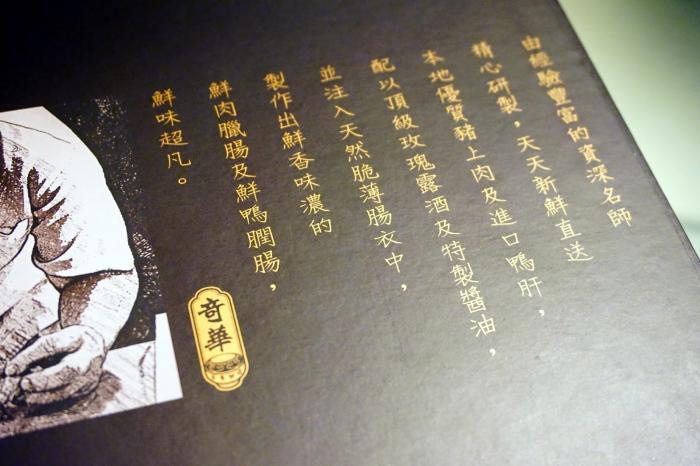 由經驗豐富的資深名師
精心研製，天天新鮮直送
本地優質豬上肉及進口鴨肝，
配以頂級玫瑰露酒及特製醬油，
並注入天然脆薄腸衣中，
製作出鮮香味濃的
鮮肉臘腸及鮮鴨膶腸，
鮮味超凡。
奇華